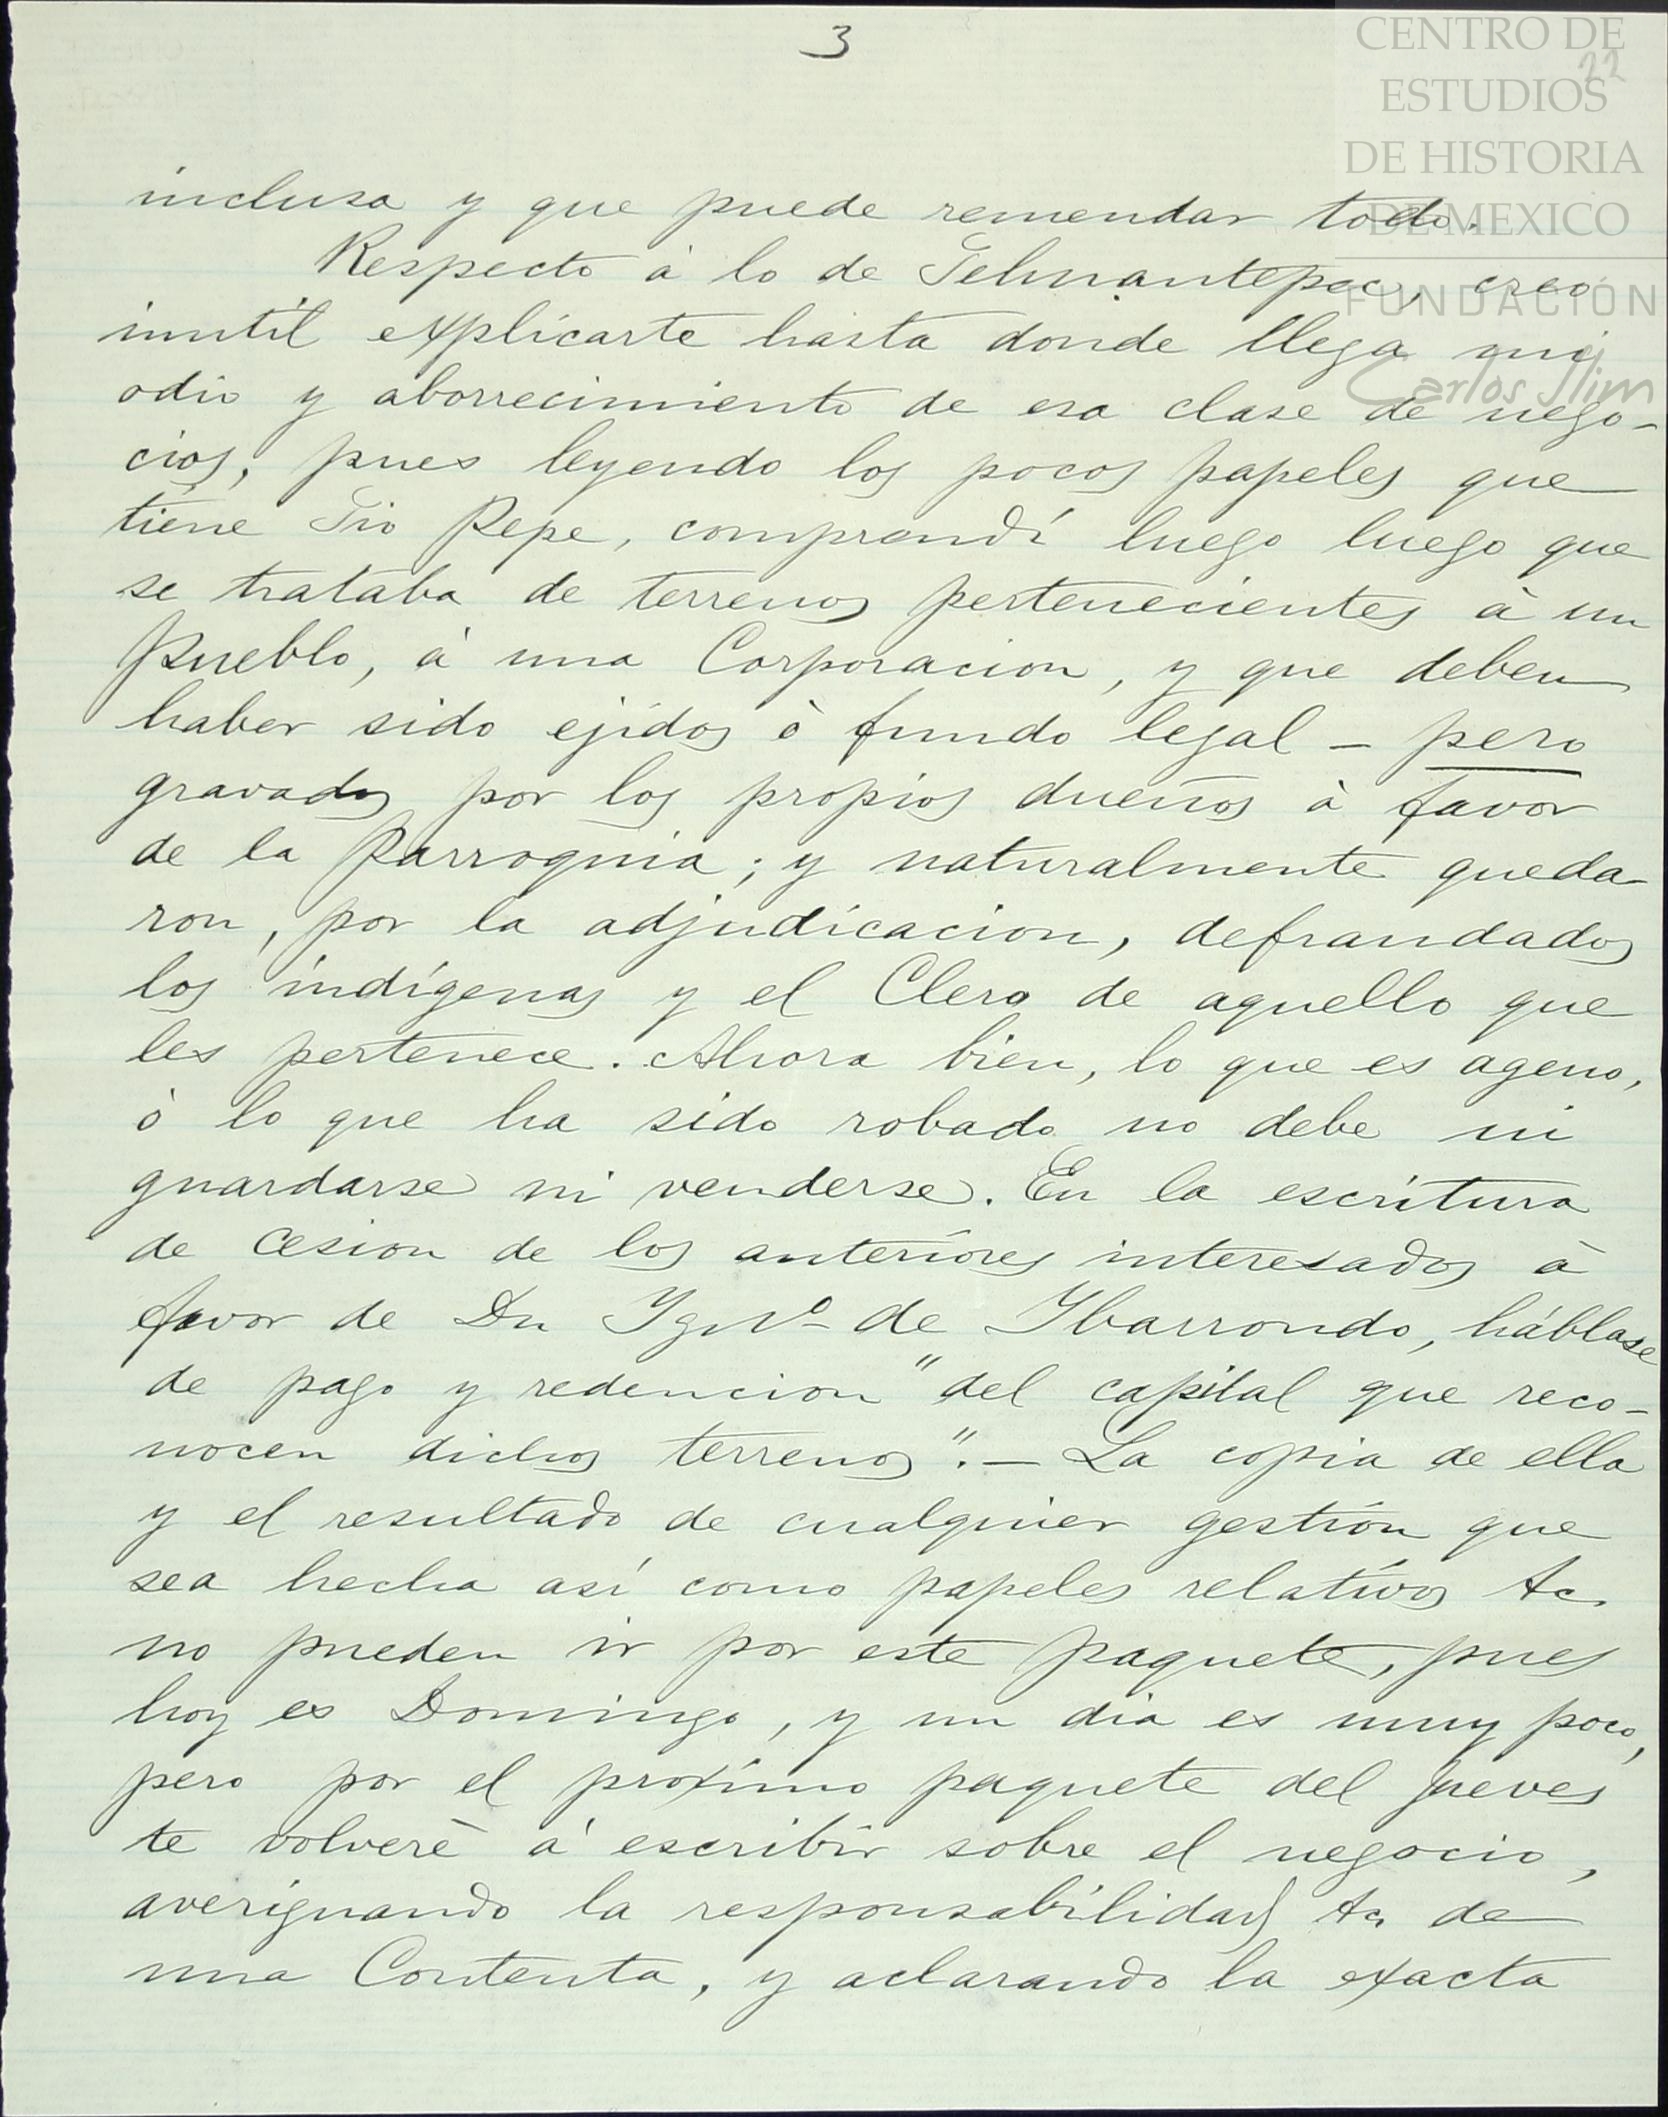 3
22
CENTRO DE
ESTUDIOS
DE HISTORIA
DE MEXICO
FUNDACIÓN
Carlos Slim
inclusa y que puede remendar todo.
Respecto á lo de Tehuantepec, creo
inutil explicarte hasta donde llega mi
odio y aborrecimiento de esa clase de nego-
cios, pues leyendo los pocos papeles que
tiene Tio Pepe, comprendí luego luego que
se trataba de terrenos pertenecientes à un
Pueblo, á una Corporacion, y que deben
haber sido ejidos ò fundo legal - pero
gravados por los propios dueños à favor
de la Parroquia; y naturalmente queda-
ron, por la adjudicacion, defraudados
los indígenas y el Clero de aquello que
les pertenece. Ahora bien, lo que es ageno,
ò lo que ha sido robado no debe ni
guardarse ni venderse. En la escritura
de cesion de los anteriores interesados à
favor de Dn Ygnº de Ybarrondo, háblase
de pago y redencion "del capital que reco-
nocen dichos terrenos". - La copia de ella
y el resultado de cualquier gestión que
sea hecha así como papeles relativos &c.
no pueden ir por este paquete, pues
hoy es Domingo, y un dia es muy poco,
pero por el proximo paquete del Jueves
te volverè á escribir sobre el negocio,
averiguando la responsabilidad &c. de
una Contenta, y aclarando la exacta